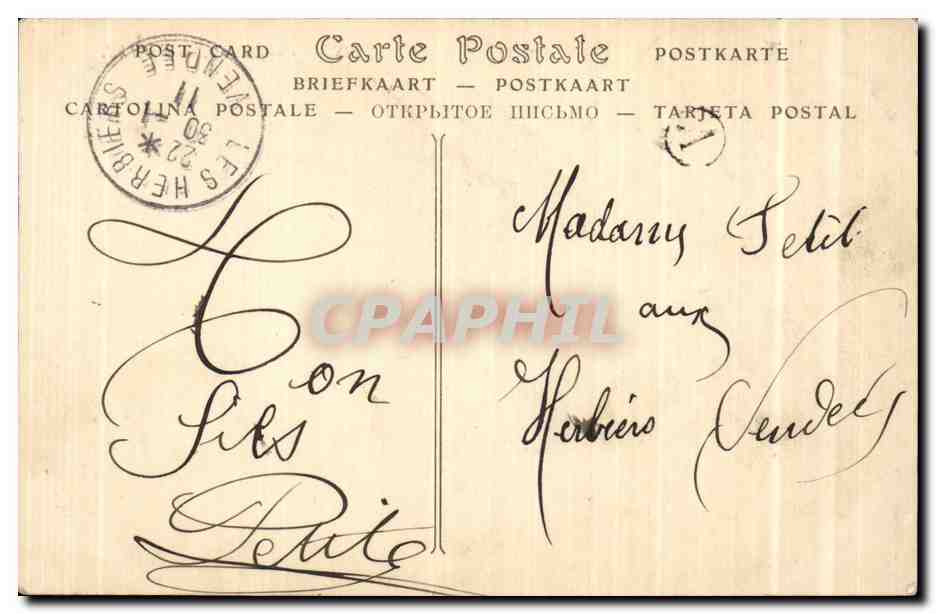 POST CARD Carte Postale POSTKARTE
BRIEFKAART — POSTKAART
CARTOLINA POSTALE — ОТКРЫТОЕ ПИСЬМО — TARJETA POSTAL
LES HERBIERS
VENDÉE
22 *
30
11
1
Ton
fils
Petit
Madame Petit
aux
Herbiers Vendée
CPAPHIL